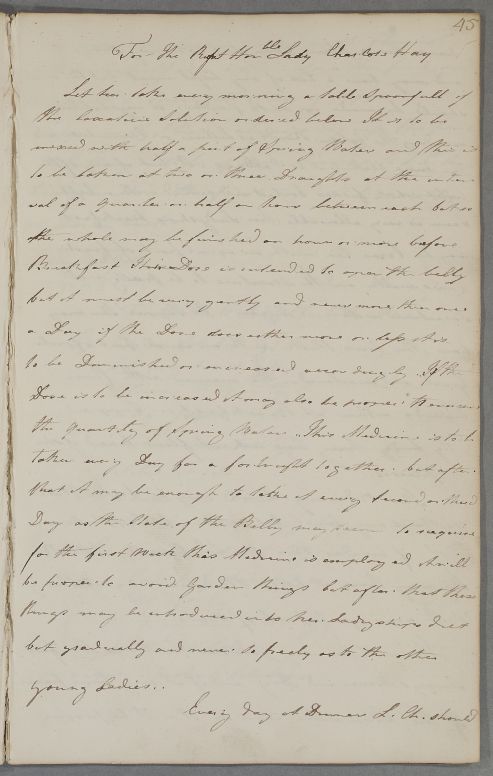 45
For the Right Honble Lady Charlote Hay
Let her take every morning a table spoonfull of
the laxative Solution ordered below It is to be
mixed with half a pint of Spring Water and this is
to be taken at two or three Draughts at the inter
val of a quarter or half an hour between each but so
the whole may be finished an hour or more before
Breakfast This Dose is intended to open the belly
but it must be very gently and never more than once
a Day if the Dose does either more or less it is
to be Diminished or increased accordingly. If the
Dose is to be increased it may also be proper to increase
the quantity of Spring Water. This Medicine is to be
taken every Day for a fortnight together. but after
that it may be enough to take it every Second or third
Day as the State of the Belly may seem to require
for the first Week this Medicine is employed it will
be proper to avoid Garden things but after that these
things may be introduced into her Ladyships diet
but gradually and never so freely as to the other
young Ladies..
Every day at Dinner L. Ch. should